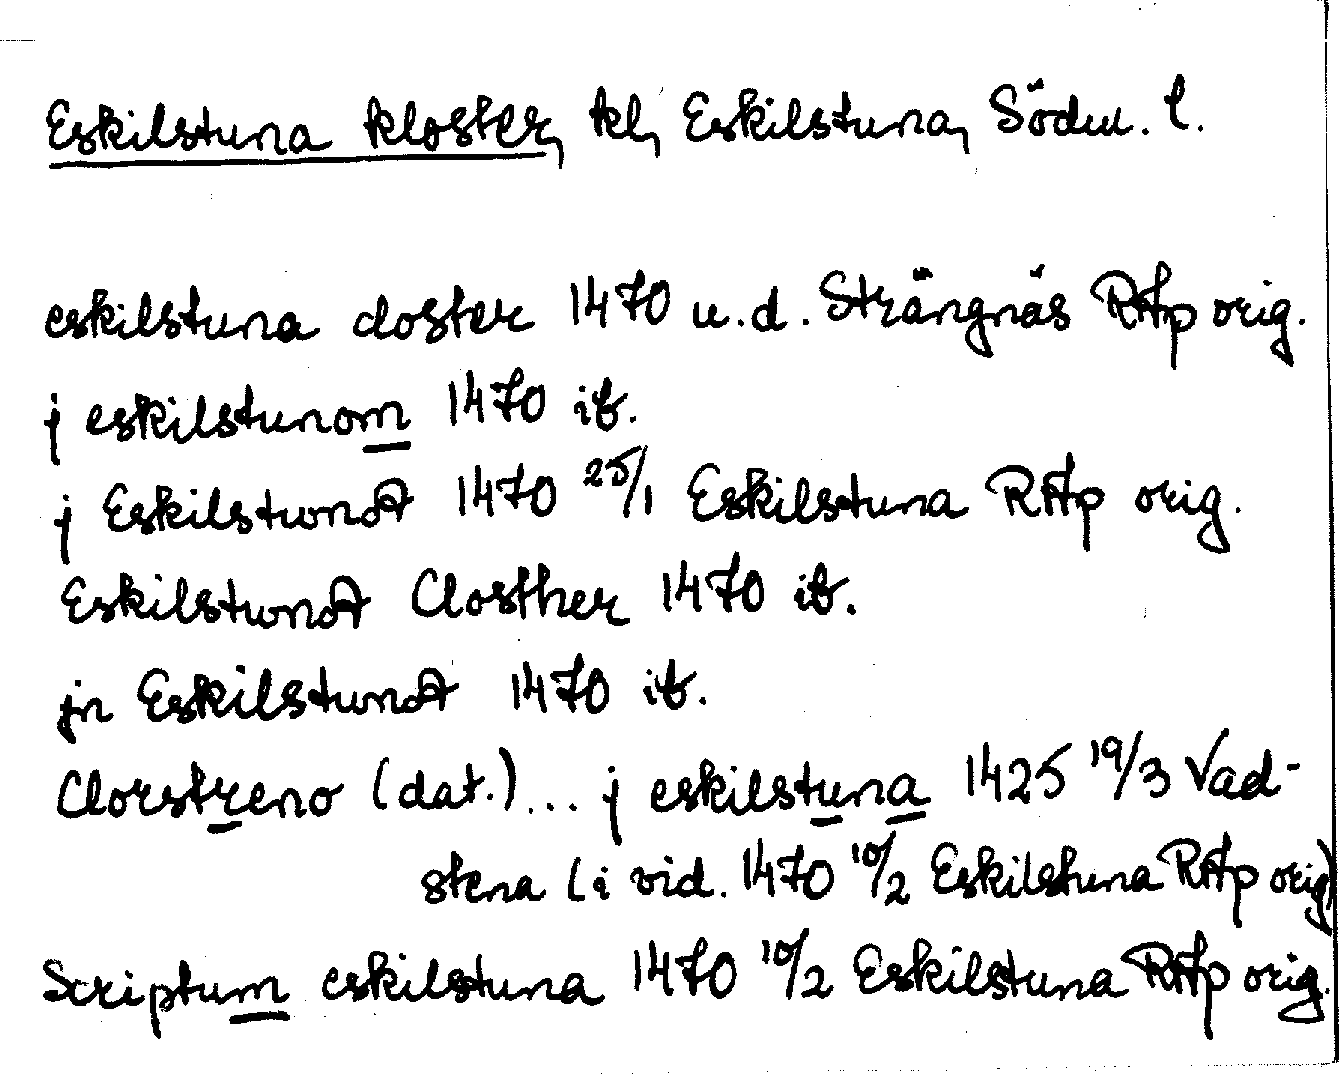 Eskilstuna kloster, kl, Eskilstuna, Södm. l.
eskilstuna closter 1470 u.d. Strängnäs RAp orig.
j eskilstunom 1470 ib.
j Eskilstuna 1470 25/1 Eskilstuna RAp orig.
Eskilstuna Closther 1470 ib.
jn Eskilstuna 1470 ib.
Clorstreno (dat.)... j eskilstuna 1425 19/3 Vad-
stena (i vid. 1470 10/2 Eskilstuna RAp orig)
Scriptum eskilstuna 1470 10/2 Eskilstuna RAp orig.